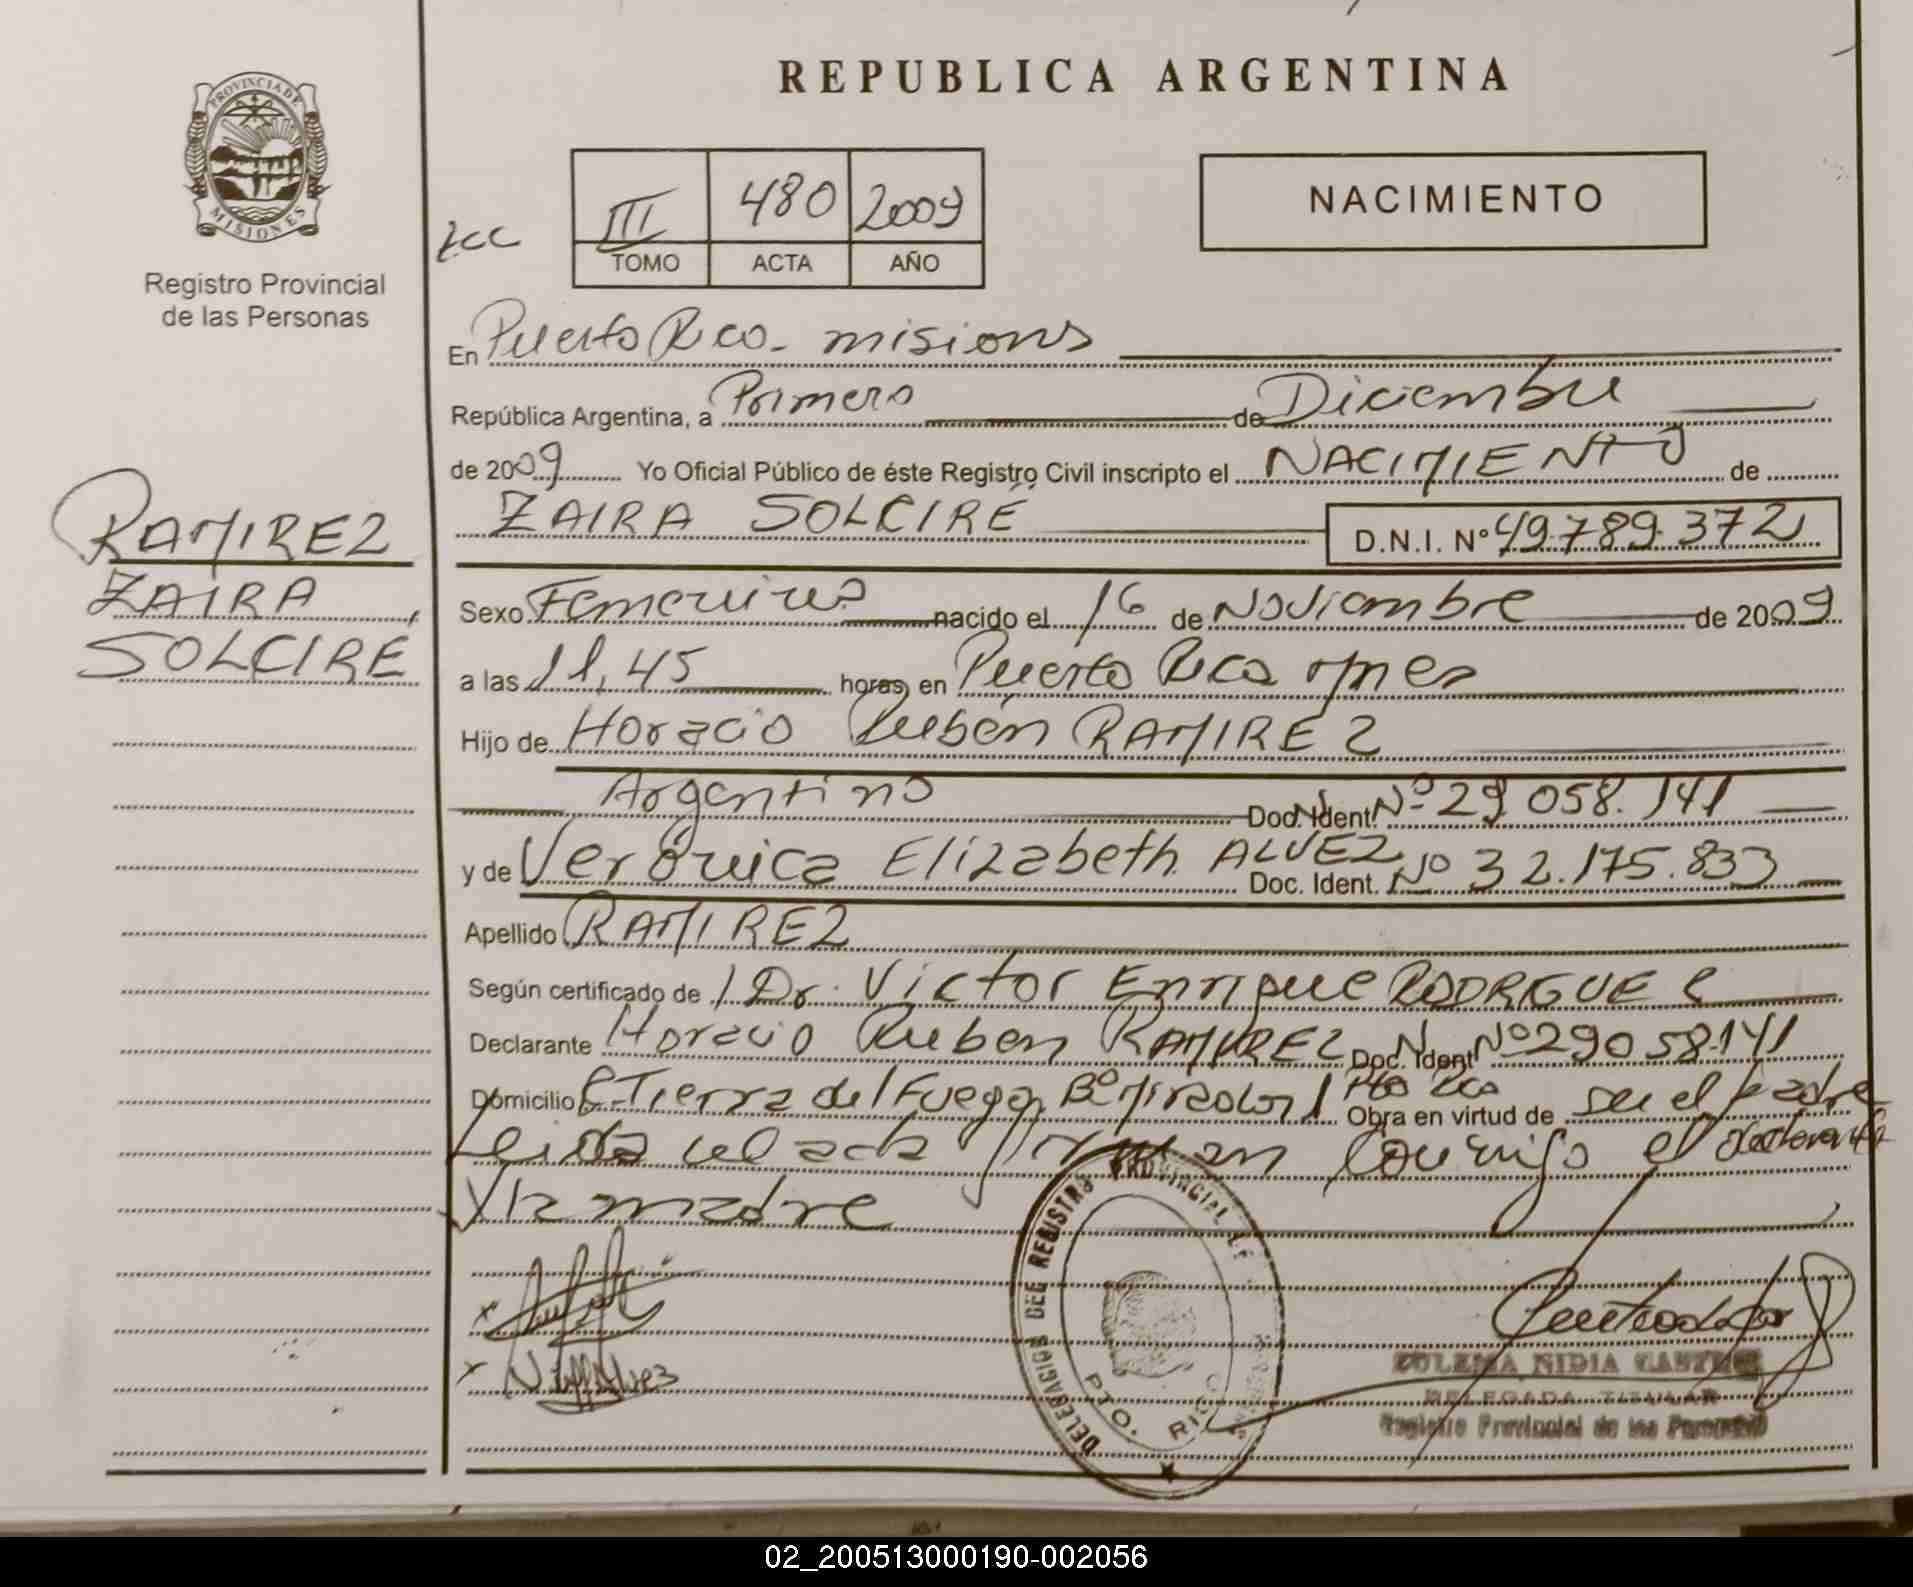 REPUBLICA ARGENTINA
PROVINCIA DE MISIONES
Registro Provincial
de las Personas
III 480 2009
TOMO ACTA AÑO
NACIMIENTO
En Puerto Rico - misiones
República Argentina, a Primero de Diciembre
de 2009 Yo Oficial Público de éste Registro Civil inscripto el NACIMIENTO de
ZAIRA SOLCIRÉ D.N.I. Nº 49.789.372
RAMIREZ
ZAIRA
SOLCIRÉ
Sexo Femenino nacido el 16 de Noviembre de 2009
a las 11,45 horas, en Puerto Rico Mnes
Hijo de Horacio Rubén RAMIREZ
Argentino Doc. Ident. Nº 29 058.141
y de Verónica Elizabeth ALVEZ Doc. Ident. Nº 32.175.833
Apellido RAMIREZ
Según certificado de Dr. Victor Enrique RODRIGUEZ
Declarante Horacio Ruben RAMIREZ Doc. Ident Nº 29058.141
Domicilio C. Tierra del Fuego, Bº Mirador Pto Rico Obra en virtud de ser el padre
Leida el acta firman conmigo el declarante
y la madre
DELEGACION DEL REGISTRO PROVINCIAL DE LAS PERSONAS
PTO. RICO
ZULEMA NIDIA
DELEGADA TITULAR
Registro Provincial de las Personas
02_200513000190-002056